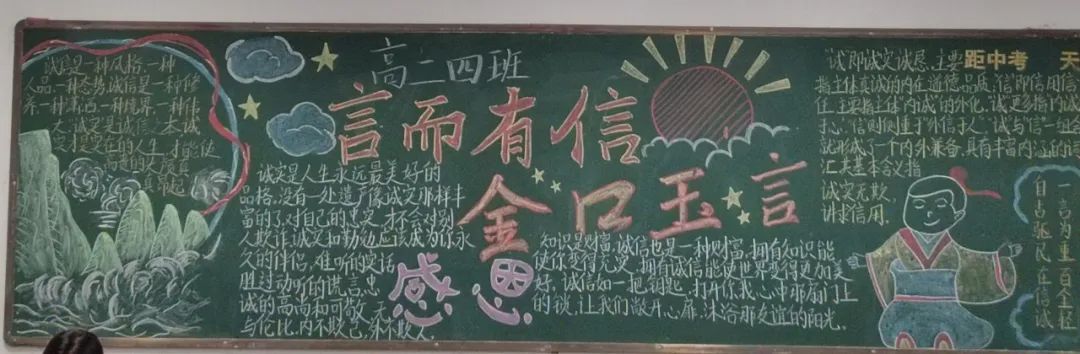 诚信是一种风格,一种
人品,一种态势,诚信是一种修
养,一种潇洒,一种境界,一种伟
大,诚实是诚信之本,诚
实才是实在的人生,才能使
高中四班
言而有信
金口玉言
诚实是人生永远最美好的
品格,没有一处遗产像诚实那样丰
富的了,对自己的忠实,才不会对别
人欺诈,诚实和勤劳应该成为你永
久的伴侣,难听的实话
胜过动听的谎言,忠
诚的高尚和可敬,无
与伦比,内不欺己,外不欺人。
感恩
知识是财富,诚信也是一种财富,拥有知识能
使你变得充实,拥有诚信能使世界变得更加美
好,诚信如一把钥匙,打开你我心中那扇门上
的锁,让我们敞开心扉,沐浴那友谊的阳光。
距中考 天
“诚”即诚实诚恳,主要
指主体真诚的内在道德品质,“信”即信用信
任,主要指主体“内诚”的外化,“诚”更多指“内诚于
心”,“信”则侧重于“外信于人”,“诚”与“信”一组合
就形成了一个内外兼备,具有丰富内涵的词
汇,其基本含义指
诚实无欺,
讲求信用。
一言为重百金轻
自古驱民在信诚